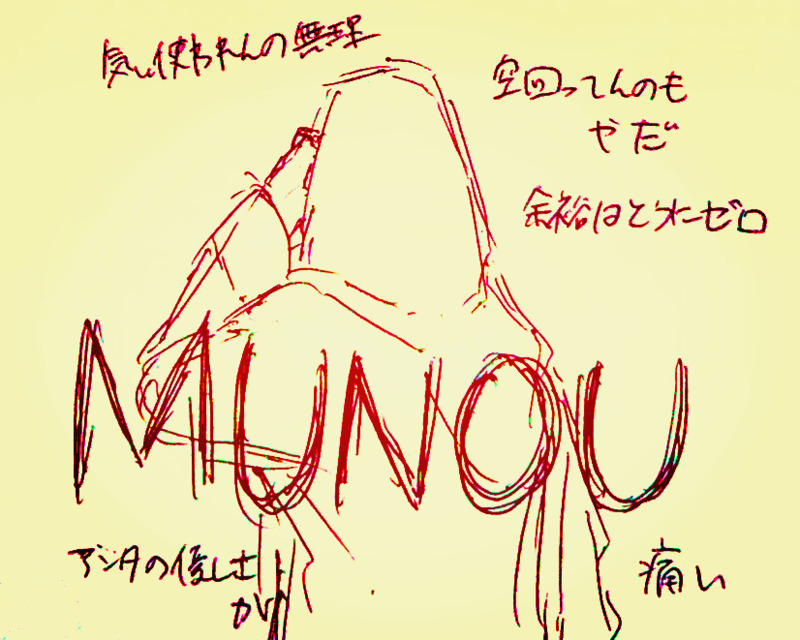 気い使われんの無理
空回ってんのも
やだ
余裕はとうにゼロ
MUNOU
アンタの優しさ
が
痛い